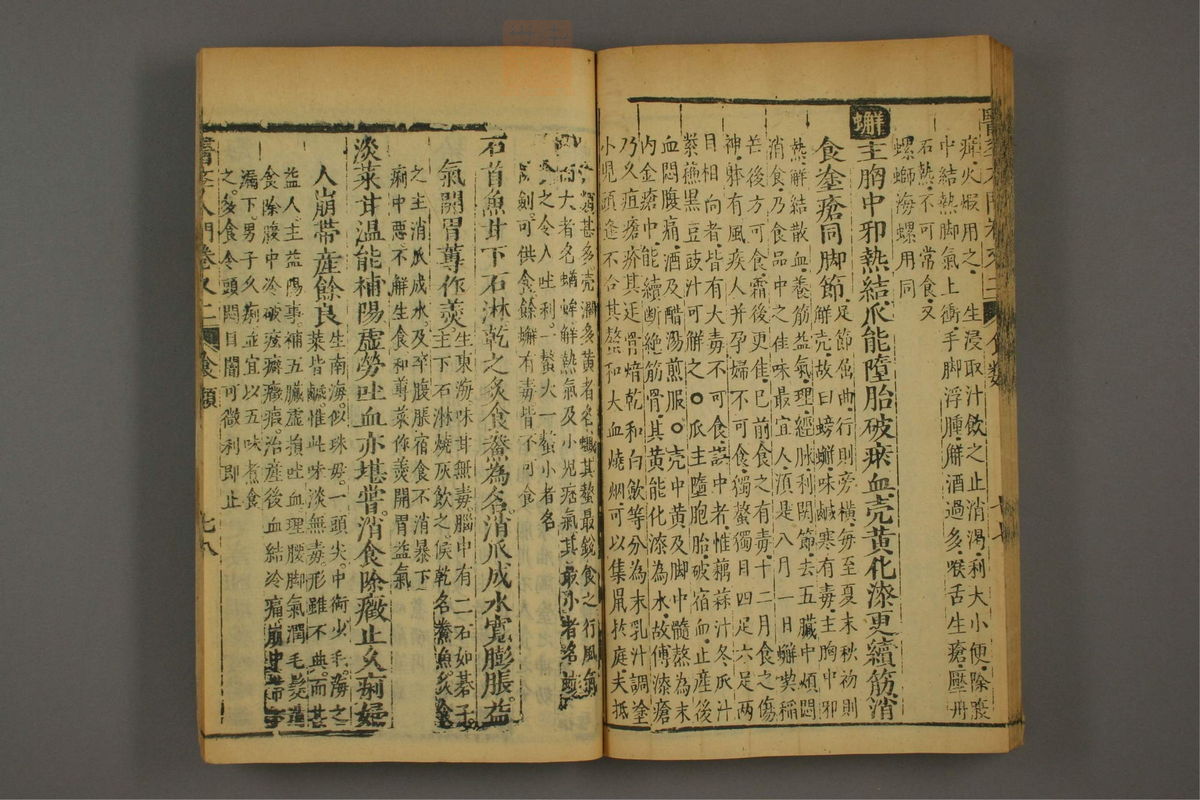 癖火煆用之生浸取汁飲之止消渴利大小便除腹
中結熱脚氣上衝手脚浮腫解酒過多喉舌生瘡壓丹
石熱不可常食又
螺螄海螺用同
蠏主胸中邪熱結爪能墮胎破瘀血壳黃化漆更續筋消
食塗瘡同脚節
足節屈曲行則旁橫每至夏末秋初則
解壳故曰螃蠏味鹹寒有毒主胸中邪
熱解結散血養筋益氣理經脉利関節去五臟中煩悶
消食乃食品中之佳味最宜人須是八月一日蠏喫稻
芒後方可食霜後更佳已前食之有毒十二月食之傷
神躰有風疾人并孕婦不可食獨螯獨目四足六足兩
目相向者皆有大毒不可食誤中者惟藕蒜汁冬瓜汁
紫蘓黑豆豉汁可解之○爪主墮胞胎破宿血止産後
血悶腹痛酒及醋湯煎服○壳中黃及脚中髓熬為末
内金瘡中能續断絕筋骨其黃能化漆為水故傅漆瘡
乃久疽瘡疥其壳骨焙乾和白歛等分為末乳汁調塗
小児頭逢不合其螯和大血燒烟可以集鼠於庭夫抵
類甚多壳濶多黃者名其螯最銳食之行風氣
大者名蝤蛑解熱氣及小児痞氣其最小者名
食之令人吐利一螯大一螯小者名
劔可供食餘蠏有毒皆不可食
石首魚甘下石淋乾之炙食鯗為名消瓜成水寬膨脹益
氣開胃蓴作羮
生東海味甘無毒腦中有二石如碁子
主下石淋燒灰飲之候乾名鯗魚炙食
之主消瓜成水及卒腹脹宿食不消暴下
痢中惡不鮮生食和蓴菜作羮開胃益氣
淡菜甘温能補陽虛勞吐血亦堪嘗消食除癥止久痢婦
人崩帶産餘良
生南海似珠母一頭尖中銜少毛海之
菜皆鹹惟此味淡無毒形雖不典而甚
益人主益陽事補五臟虛損吐血理腰脚氣潤毛髮
食除腹中冷破痃癖癥瘕治産後血結冷痛崩中帶
漏下男子久痢並宜以五味煮食
之多食令頭悶目闇可微利即止